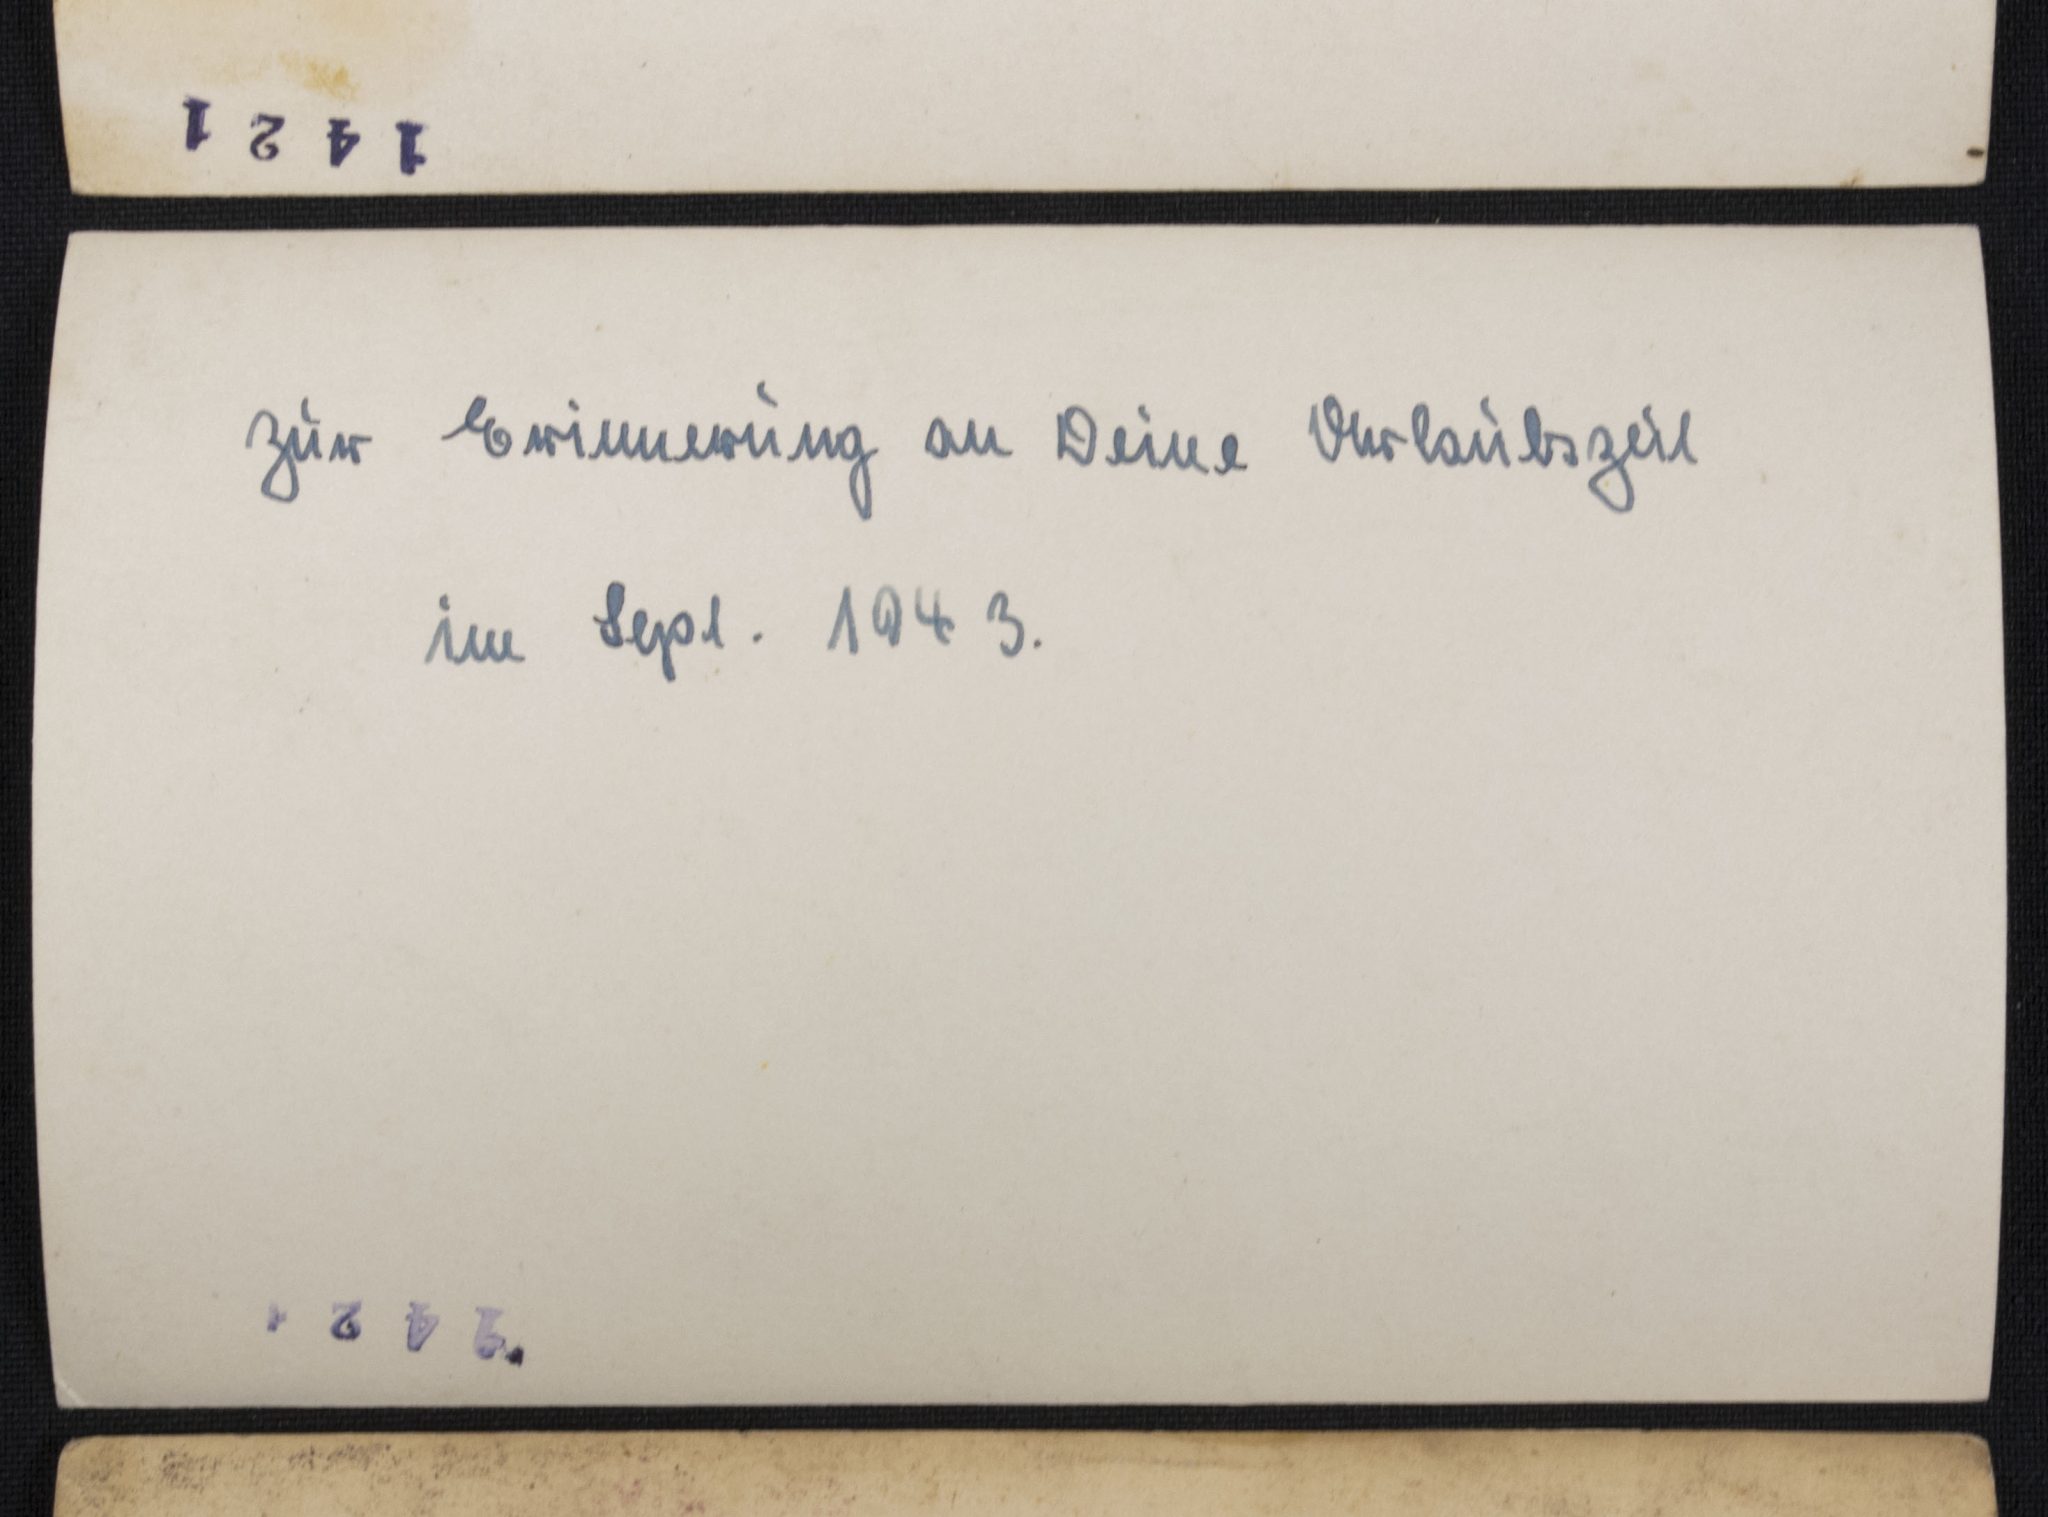 1421
Zur Erinnerung an Deine Urlaubszeit
im Sept. 1943.
1421